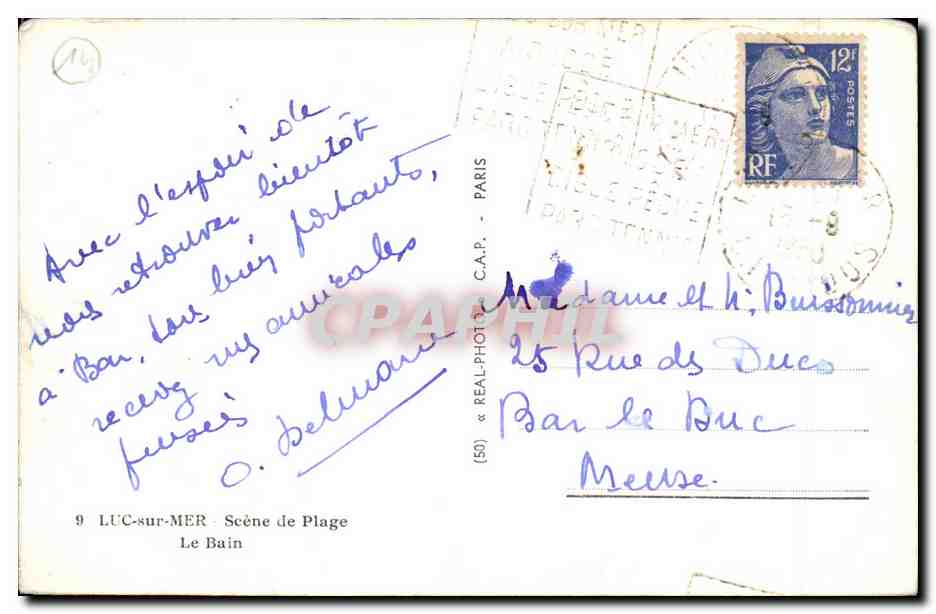 Avec l'espoir de
nous retrouver bientôt
à Bar, tous bien portants,
recevez mes amicales
pensées
O. Delmane
9 LUC-sur-MER - Scène de Plage
Le Bain
(50) « REAL-PHOTO » C.A.P. - PARIS
12F
POSTES
RF
LIGUE PÊCHE
PARC TENNIS
Madame et M. Buissonnier
25 Rue des Ducs
Bar le Duc
Meuse.
CPAPHIL